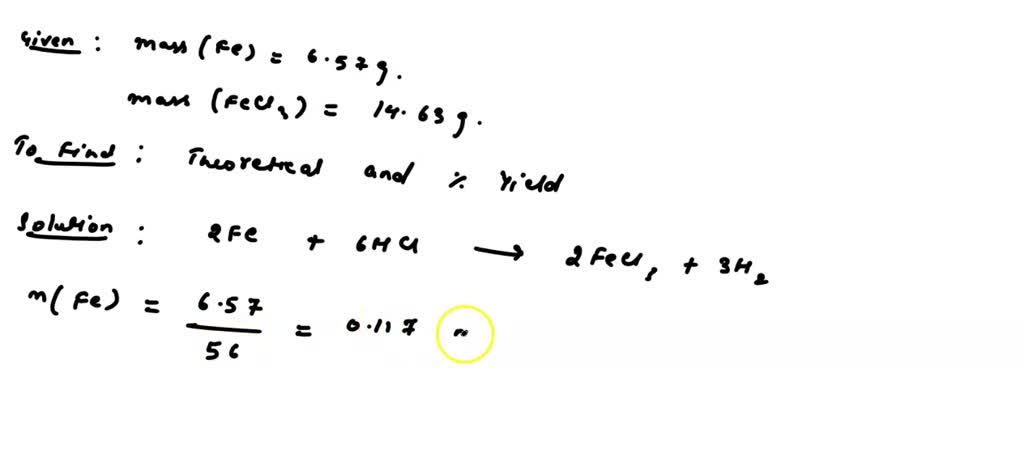 Given : mass (Fe) = 6.57 g.
mass (FeCl3) = 14.63 g.
To Find : Theoretical and % Yield
Solution : 2Fe + 6HCl → 2FeCl3 + 3H2
n(Fe) = 6.57 / 56 = 0.117 m